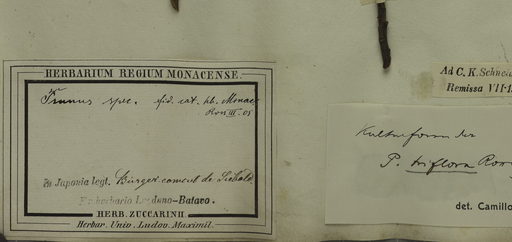 HERBARIUM REGIUM MONACENSE.
Prunus spec. fid. cat. hb. Monac
III. 05
In Japonia legt. Bürger consul de Siebold
Ex herbario Lugduno-Batavo.
HERB. ZUCCARINII
Herbar. Univ. Ludov. Maximil.
Ad C. K. Schnei
Remissa VII.1
Kulturform der
P. triflora Rox
det. Camillo